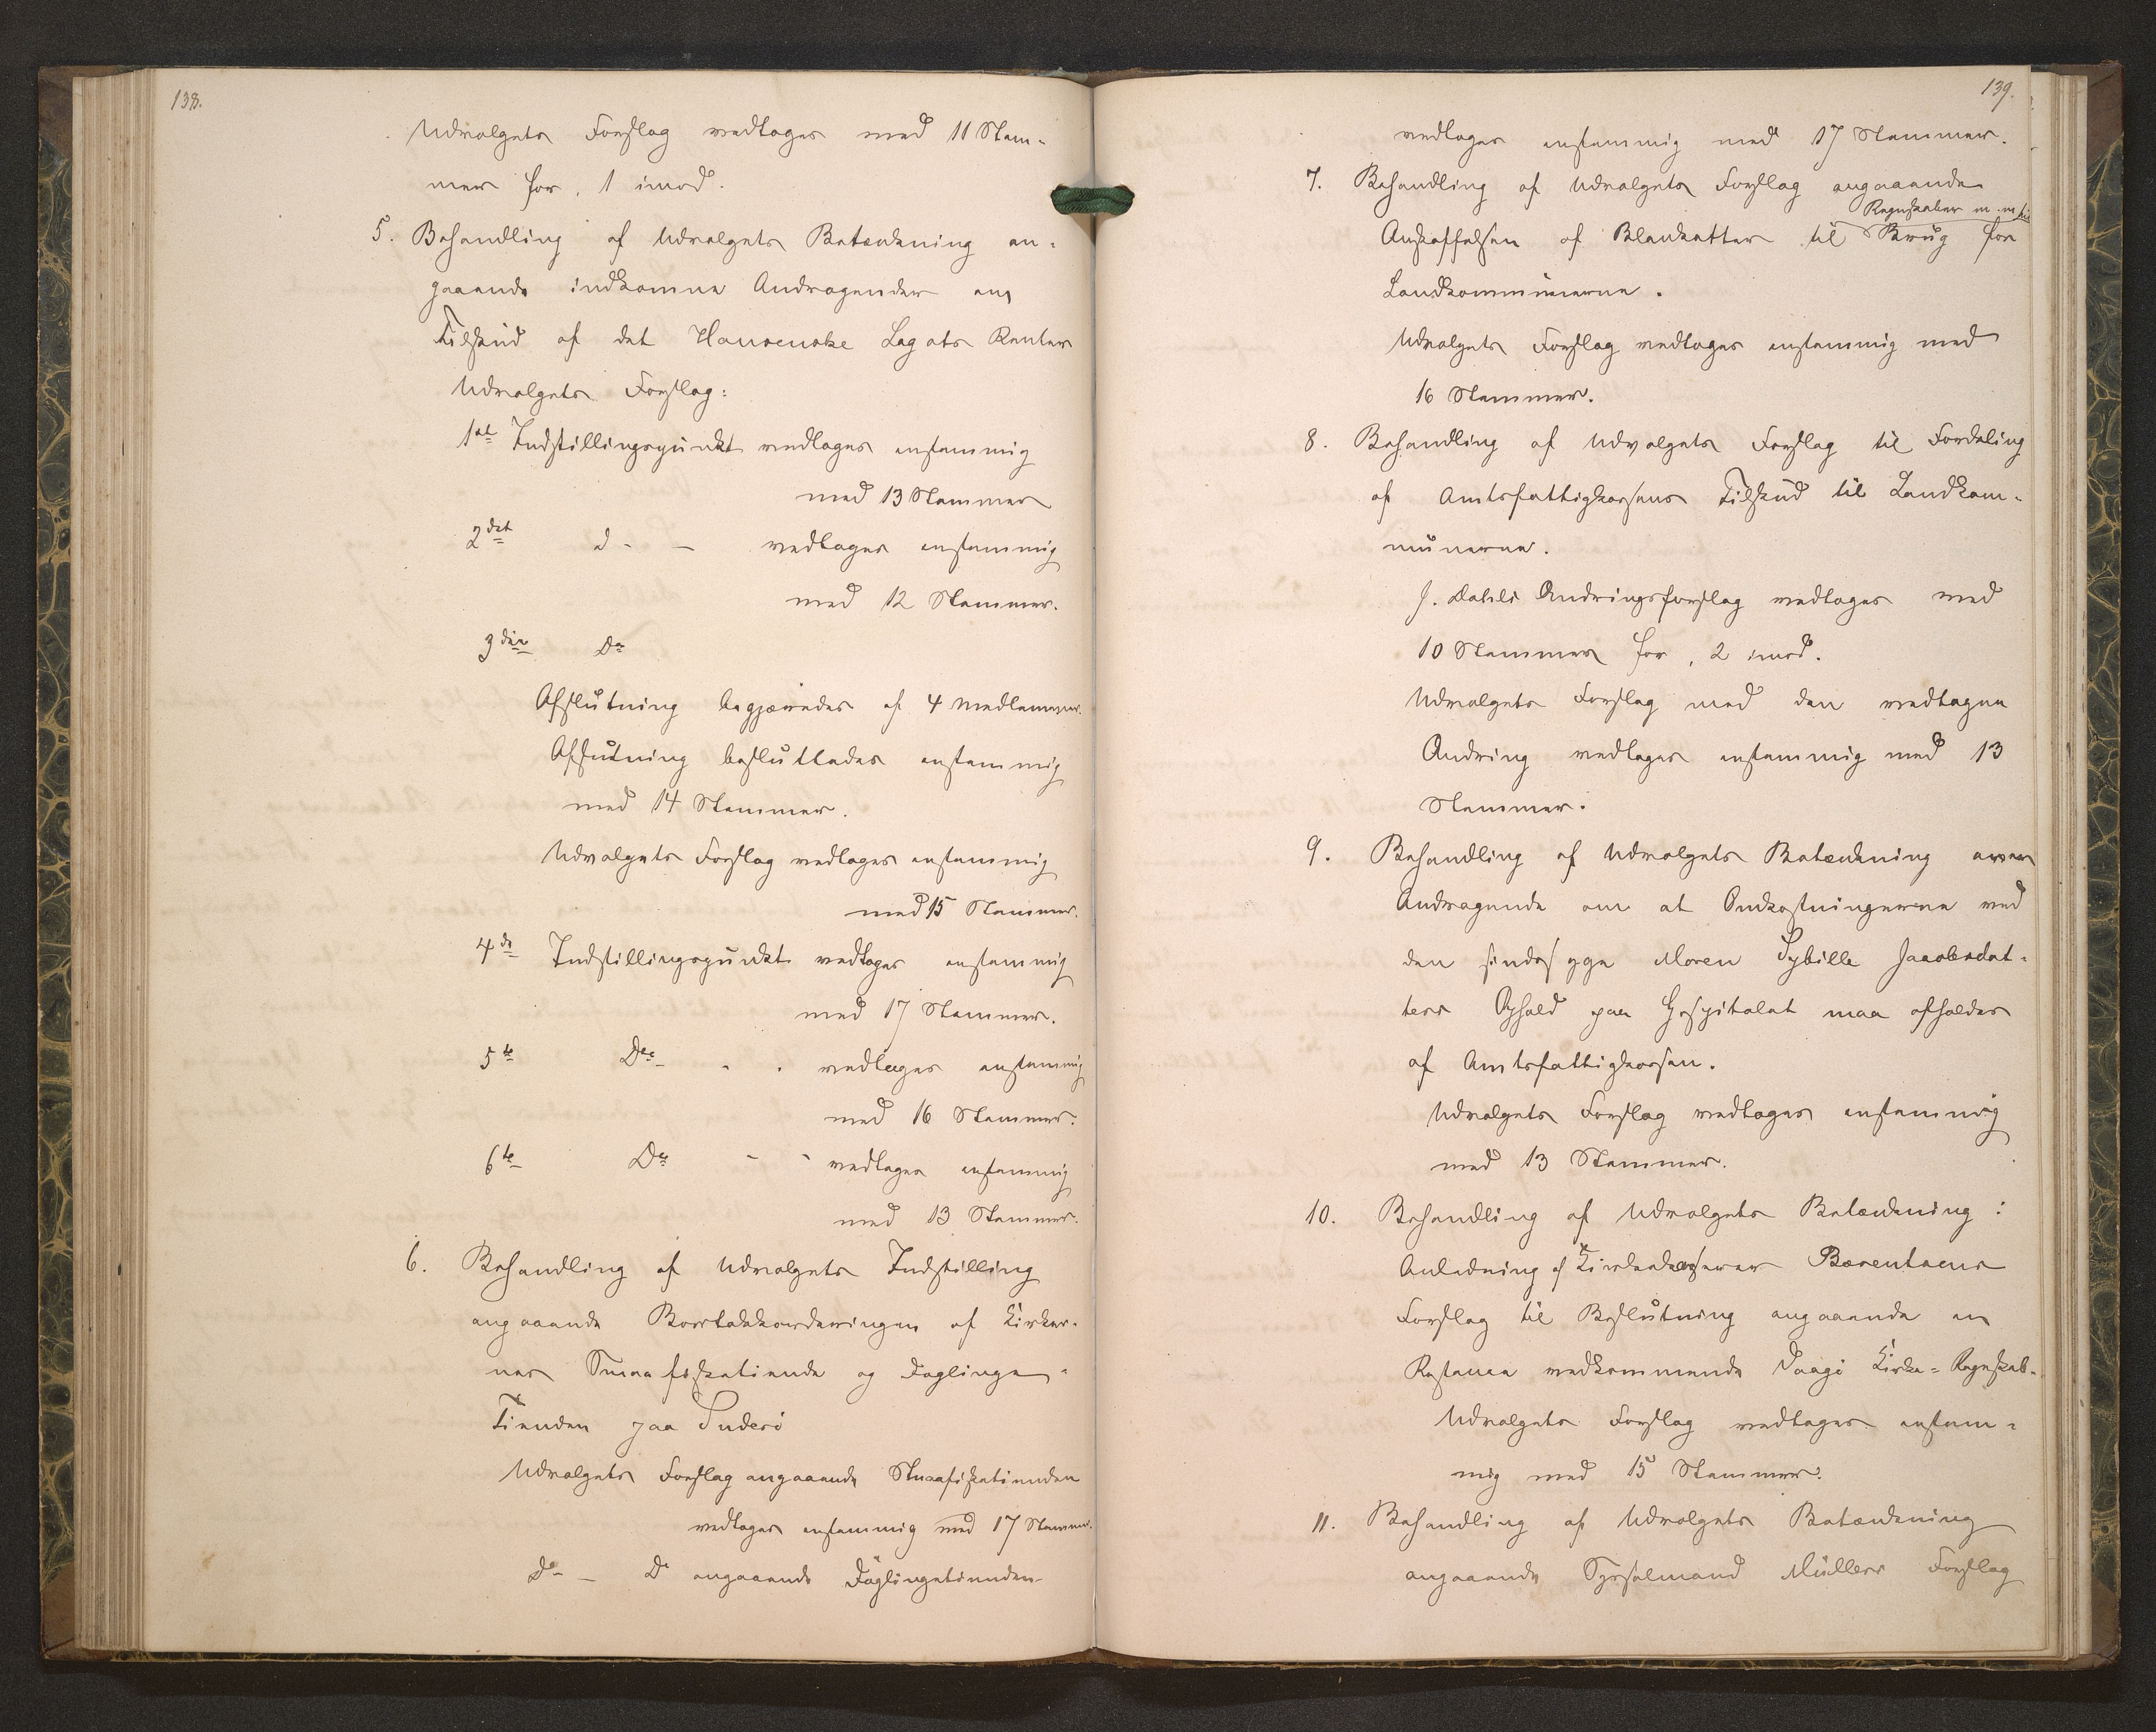 138.
Udvalgets Forslag vedtages med 11 Stem-
mer for, 1 imod.
5. Behandling af Udvalgets Betænkning an-
gaaende indkomne Andragender om
Tilskud af det Hansenske Legats Renter
Udvalgets Forslag:
1st Indstillingspunkt vedtages enstemmig
med 13 Stemmer
2det d - - vedtages enstemmig
med 12 Stemmer.
3die Do
Afslutning begjæredes af 4 Medlemmer.
Afslutning besluttedes enstemmig
med 14 Stemmer.
Udvalgets Forslag vedtages enstemmig
med 15 Stemmer.
4de Indstillingspunkt vedtages enstemmig
med 17 Stemmer.
5te Do - - vedtages enstemmig
med 16 Stemmer.
6te Do - - vedtages enstemmig
med 13 Stemmer.
6. Behandling af Udvalgets Indstilling
angaaende Bortakkorderingen af Kirker-
nes Smaafisketiende og Føglinge-
Tienden paa Suderö
Udvalgets Forslag angaaende Smaafisketienden
vedtages enstemmig med 17 Stemmer.
Do - Do angaaende Føglingetienden
139.
vedtages enstemmig med 17 Stemmer.
7. Behandling af Udvalgets Forslag angaaende
Regnskaber m. m. til
Anskaffelsen af Blanketter til Brug for
Landkommunerne.
Udvalgets Forslag vedtages enstemmig med
16 Stemmer.
8. Behandling af Udvalgets Forslag til Fordeling
af Amtsfattigkassens Tilskud til Landkom-
munerne.
J. Dahls Ændringsforslag vedtages med
10 Stemmer for, 2 imod.
Udvalgets Forslag med den vedtagne
Ændring vedtages enstemmig med 13
Stemmer.
9. Behandling af Udvalgets Betænkning over
Andragende om at Omkostningerne ved
den sindssyge Maren Sybille Jacobsdat-
ters Ophold paa Hospitalet maa afholdes
af Amtsfattigkassen.
Udvalgets Forslag vedtages enstemmig
med 13 Stemmer.
10. Behandling af Udvalgets Betænkning i
Anledning af Kirkekasserer Bærentsens
Forslag til Beslutning angaaende en
Restance vedkommende Vaagö Kirke-Regnskab.
Udvalgets Forslag vedtages enstem-
mig med 15 Stemmer.
11. Behandling af Udvalgets Betænkning
angaaende Sysselmand Müllers Forslag